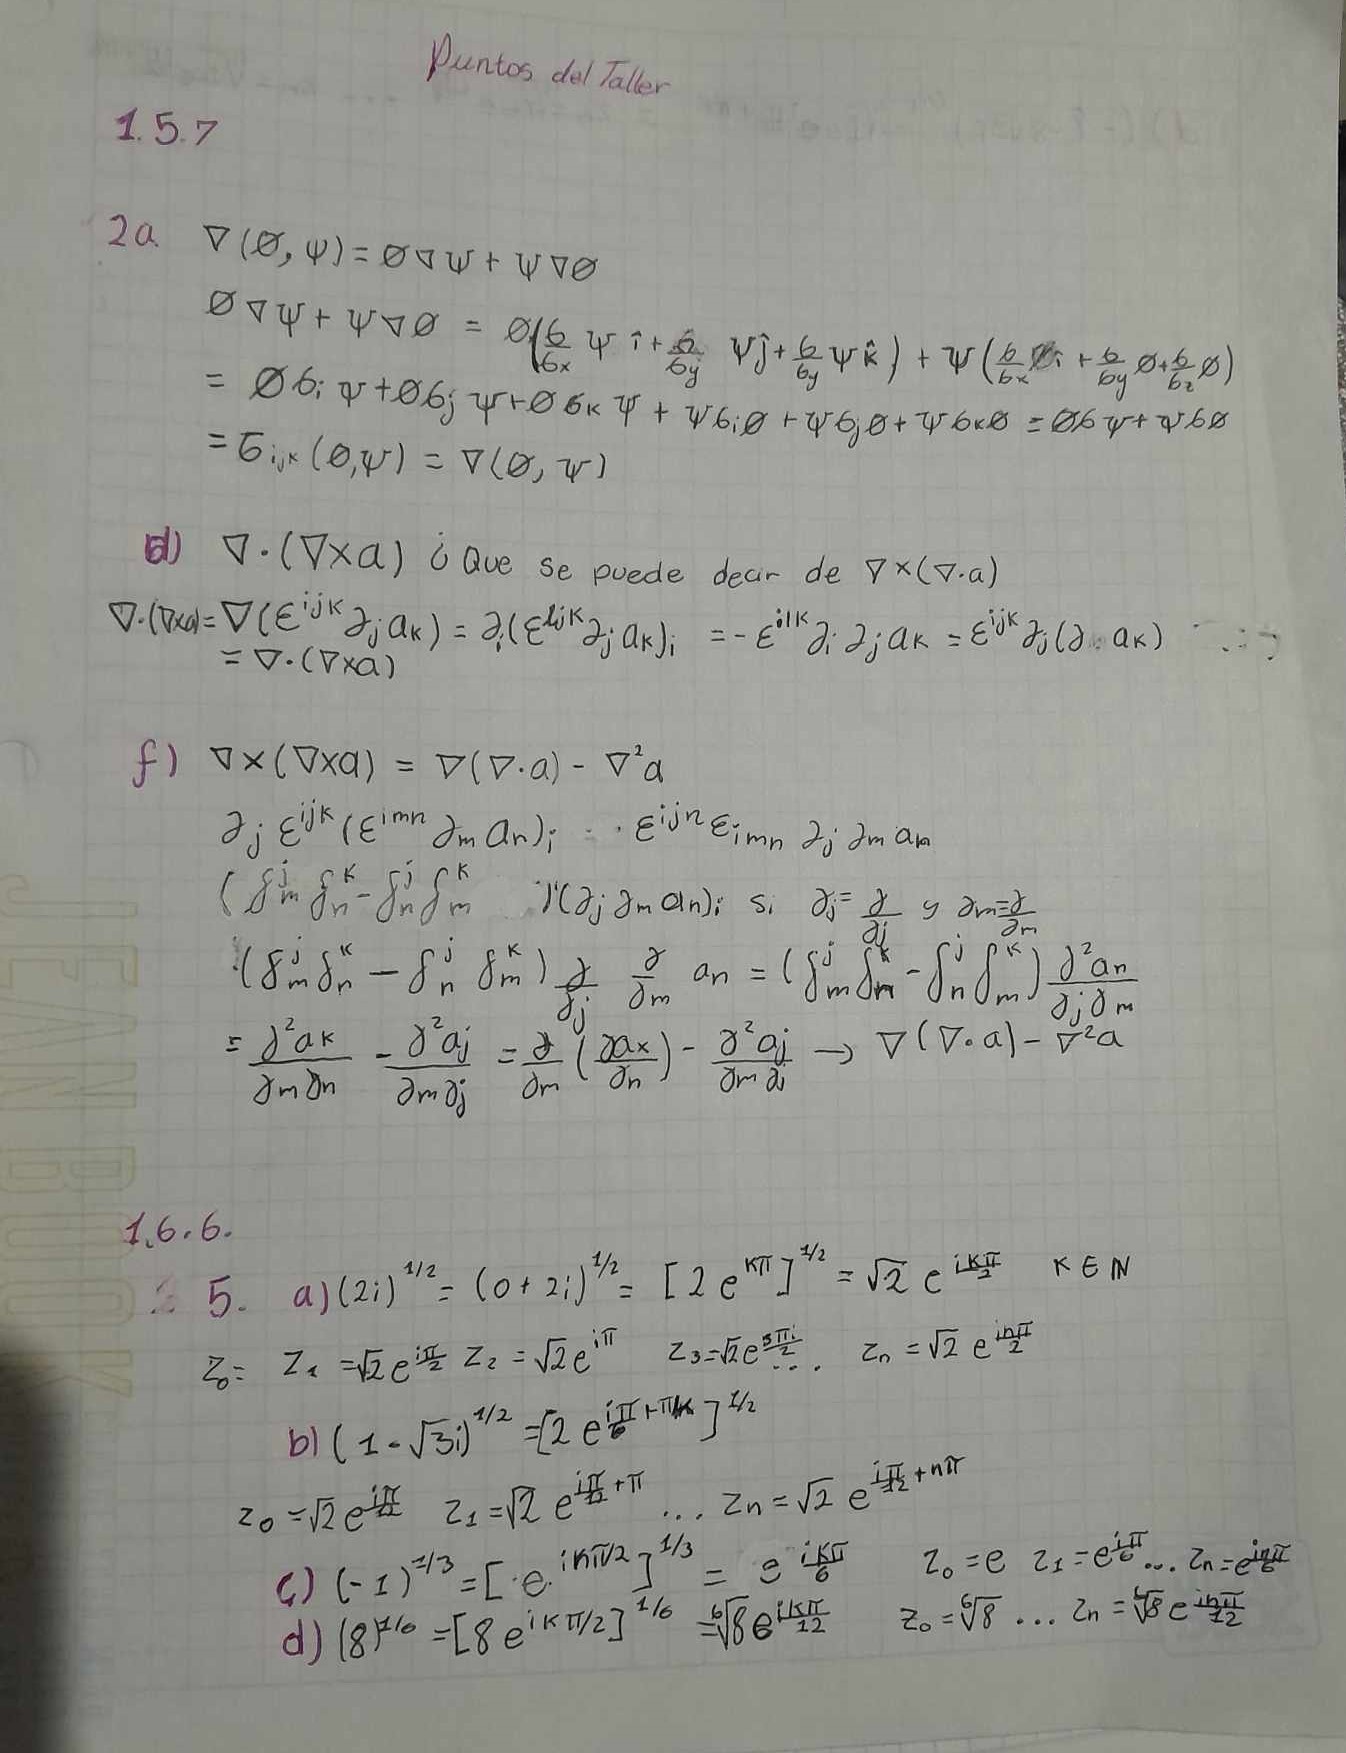 Puntos del Taller
1.5.7
2a ∇(Ø, ψ) = Ø∇ψ + ψ∇Ø
Ø∇ψ + ψ∇Ø = Ø(6/6x ψ î + 6/6y ψĵ + 6/6y ψ k̂) + ψ(6/6x Øi + 6/6y Ø + 6/6z Ø)
= Ø6i ψ + Ø6j ψ + Ø6k ψ + ψ6iØ + ψ6jØ + ψ6kØ = Ø6ψ + ψ6Ø
= 6ijk (Ø,ψ) = ∇(Ø, ψ)
d) ∇·(∇×a) ¿Que se puede decir de ∇×(∇·a)
∇·(∇×a) = ∇(ε^{ijk} ∂j ak) = ∂i(ε^{ijk} ∂j ak)i = -ε^{ilk} ∂i ∂j ak = ε^{ijk} ∂j(∂ ak)
= ∇·(∇×a)
f) ∇×(∇×a) = ∇(∇·a) - ∇²a
∂j ε^{ijk} (ε^{imn} ∂m an)i ε^{ijn} ε_{imn} ∂j ∂m an
(δ^j_m δ^k_n - δ^j_n δ^k_m )(∂j ∂m an)i si ∂j = ∂/∂j y ∂m = ∂/∂m
(δ^j_m δ^k_n - δ^j_n δ^k_m) ∂/∂j ∂/∂m an = (δ^j_m δ^k_n - δ^j_n δ^k_m) ∂²an/∂j∂m
= ∂²ak/∂m∂n - ∂²aj/∂m∂j = ∂/∂m (∂ax/∂n) - ∂²aj/∂m∂j → ∇(∇·a) - ∇²a
1.6.6.
5. a) (2i)^{1/2} = (0 + 2i)^{1/2} = [2e^{kπ}]^{1/2} = √2 e^{ikπ/2} K ∈ ℕ
z0 = z1 = √2 e^{iπ/2} z2 = √2 e^{iπ} z3 = √2 e^{3πi/2} ... zn = √2 e^{inπ/2}
b) (1 - √3i)^{1/2} = [2 e^{iπ/6 + πk}]^{1/2}
z0 = √2 e^{iπ/12} z1 = √2 e^{iπ/12 + π} ... zn = √2 e^{iπ/12 + nπ}
c) (-1)^{1/3} = [·e^{ikπ/2}]^{1/3} = e^{ikπ/6} z0 = e z1 = e^{iπ/6} ... zn = e^{inπ/6}
d) (8)^{1/6} = [8 e^{ikπ/2}]^{1/6} = ⁶√8 e^{ikπ/12} z0 = ⁶√8 ... zn = ⁶√8 e^{inπ/12}
JEAN BOOK